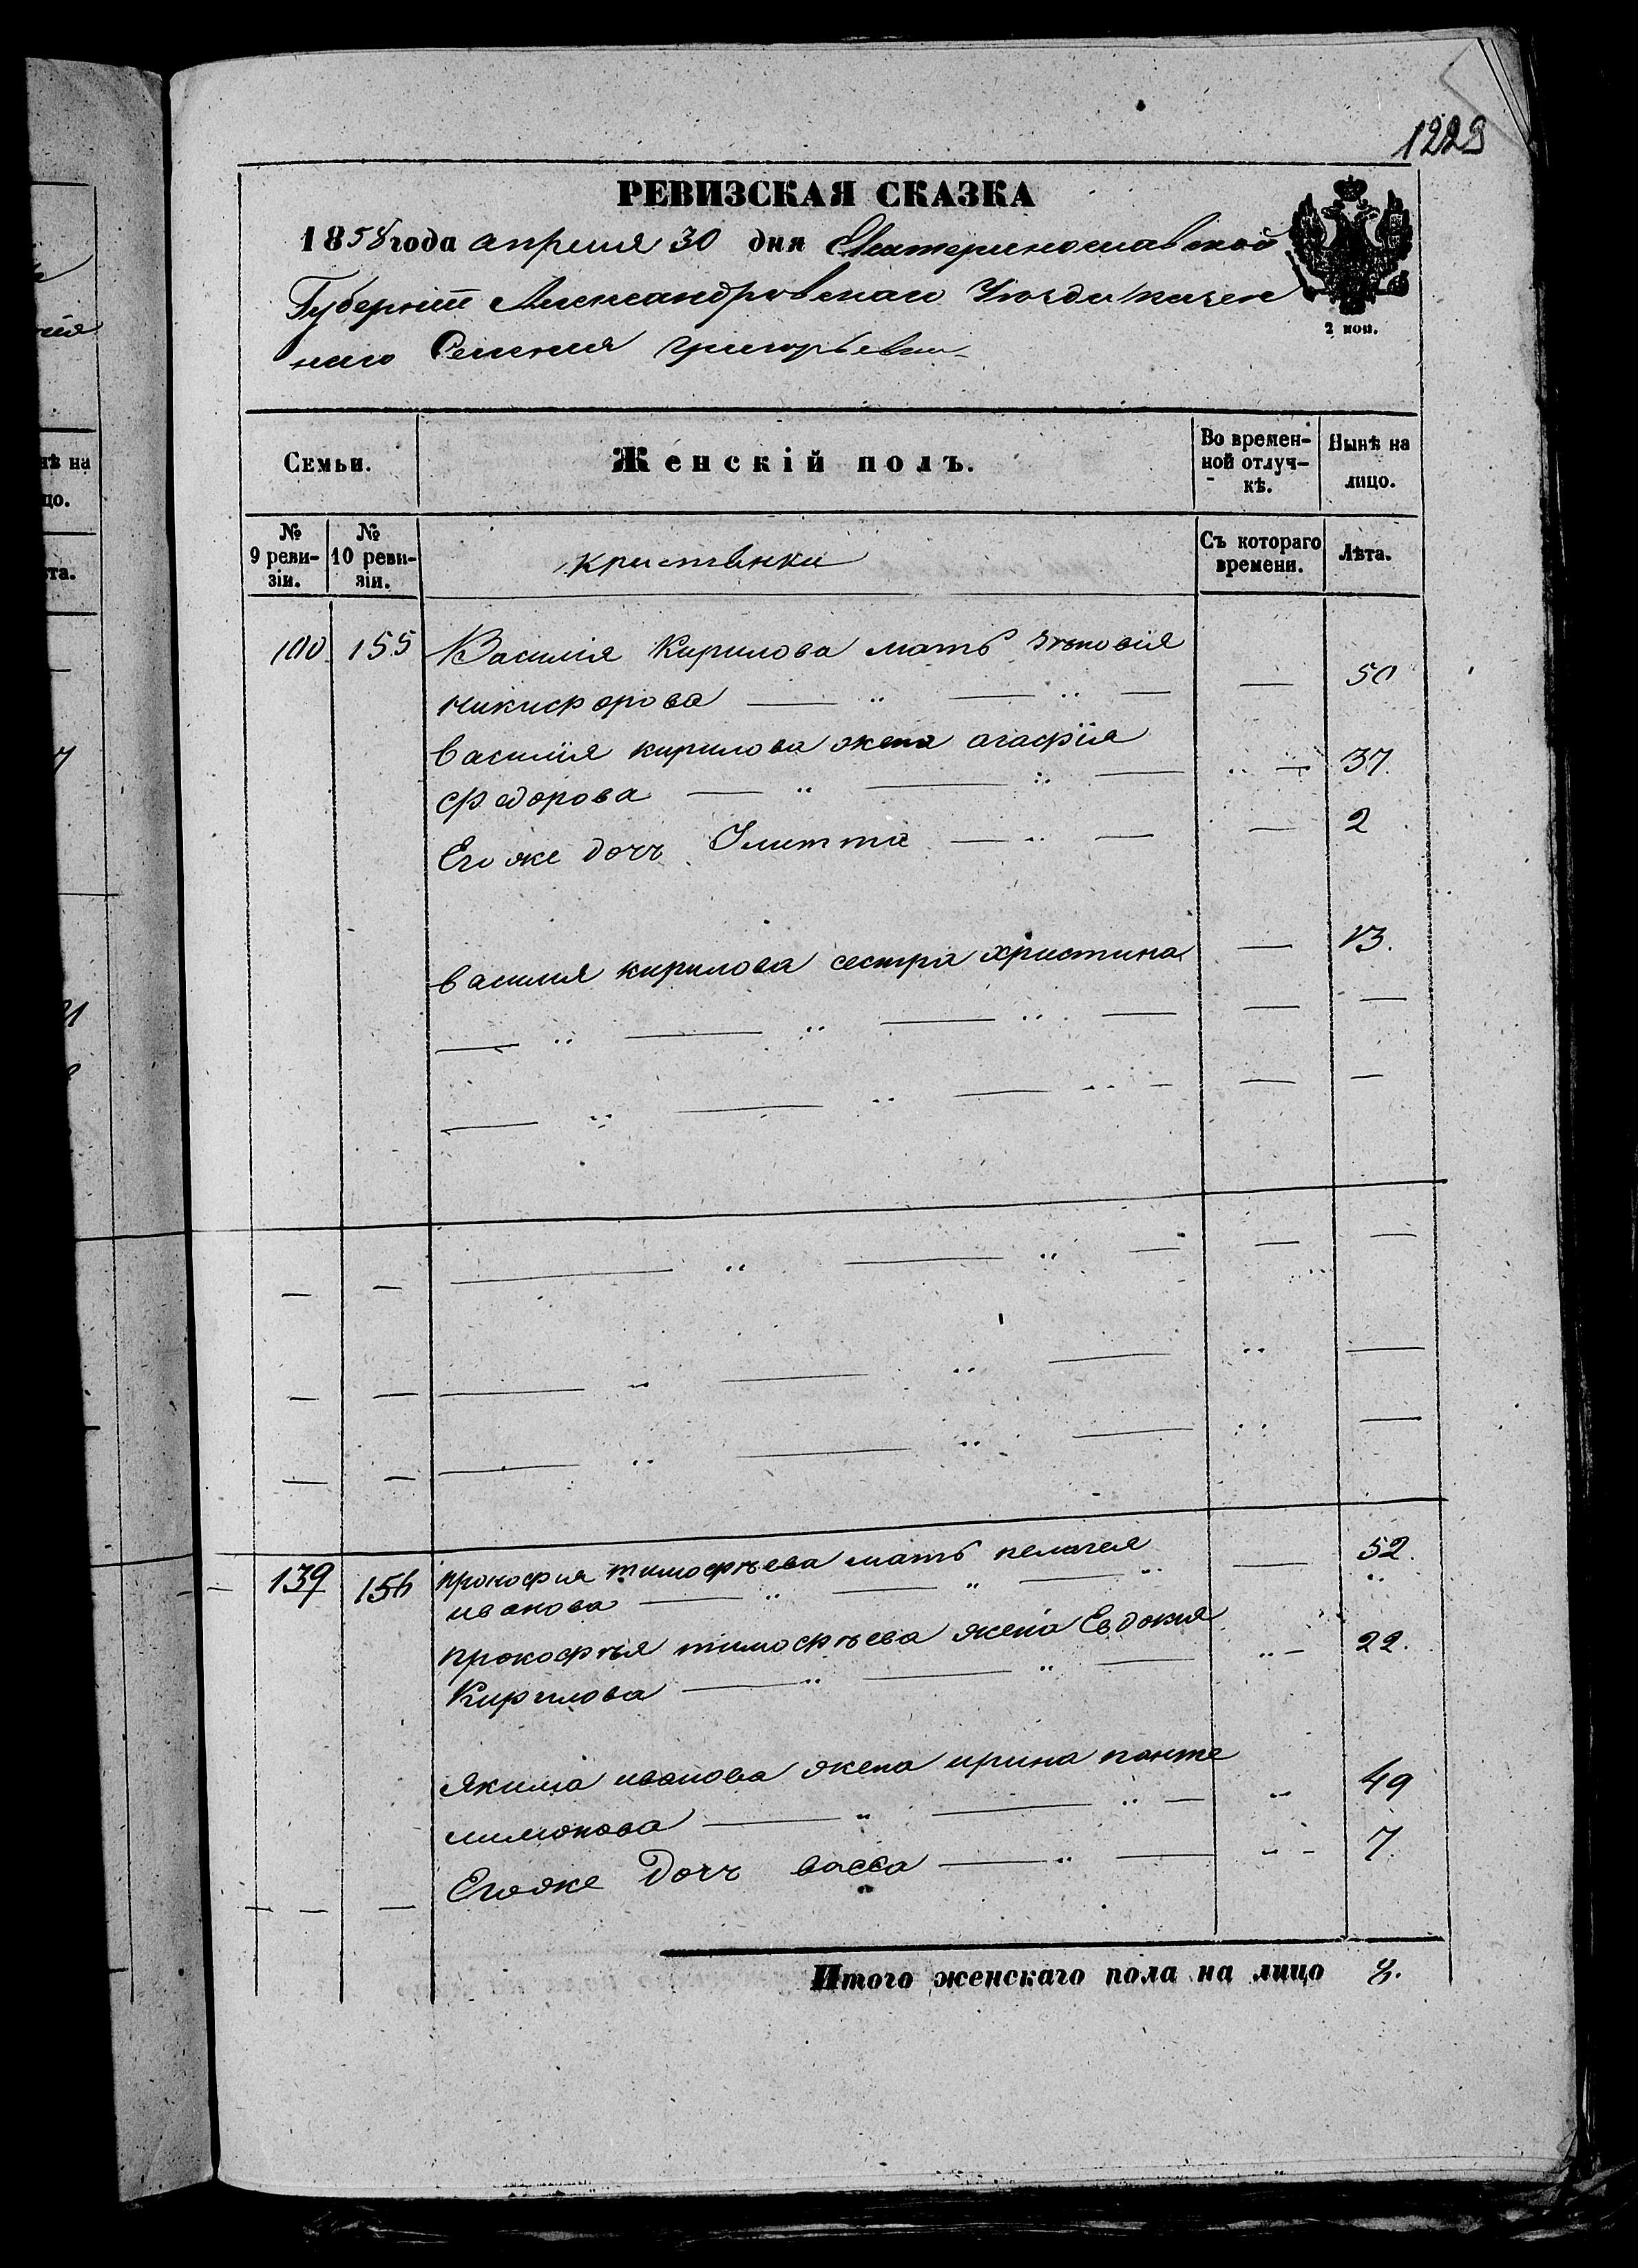 1223
РЕВИЗСКАЯ СКАЗКА
1858 года апреля 30 дня Екатеринославской
Губерніи Александровскаго Уѣзда казен
наго Селения Григорьевки
2 коп.
Семьи.
Женскій полъ.
Во времен-
ной отлуч-
кѣ.
Нынѣ на
лицо.
№
9 реви-
зіи.
№
10 реви-
зіи.
Съ котораго
времени.
Лѣта.
155 Василия Кирилова мать
никифорова — " — " — — 50
василія кирилова жена агафія
федорова — " — " — " — 37.
Его же дочъ Улитта — " — — 2
василия кирилова сестра христина — 13.
— " — " — " — — —
— " — " — " — — —
— — — " — " — — —
— — — " — " — " —
— — — " — " — " —
139 156 прокофия тимофѣева мать пелагея — 52.
иванова — " — " — "
прокофѣя тимофѣева жена Евдокия " — 22.
Кирилова — " — " —
якима иванова жена ирина панте " 49
лимонова — " — " —
Его же Дочъ васса — " — " - 7.
— — —
Итого женскаго пола на лицо 8.